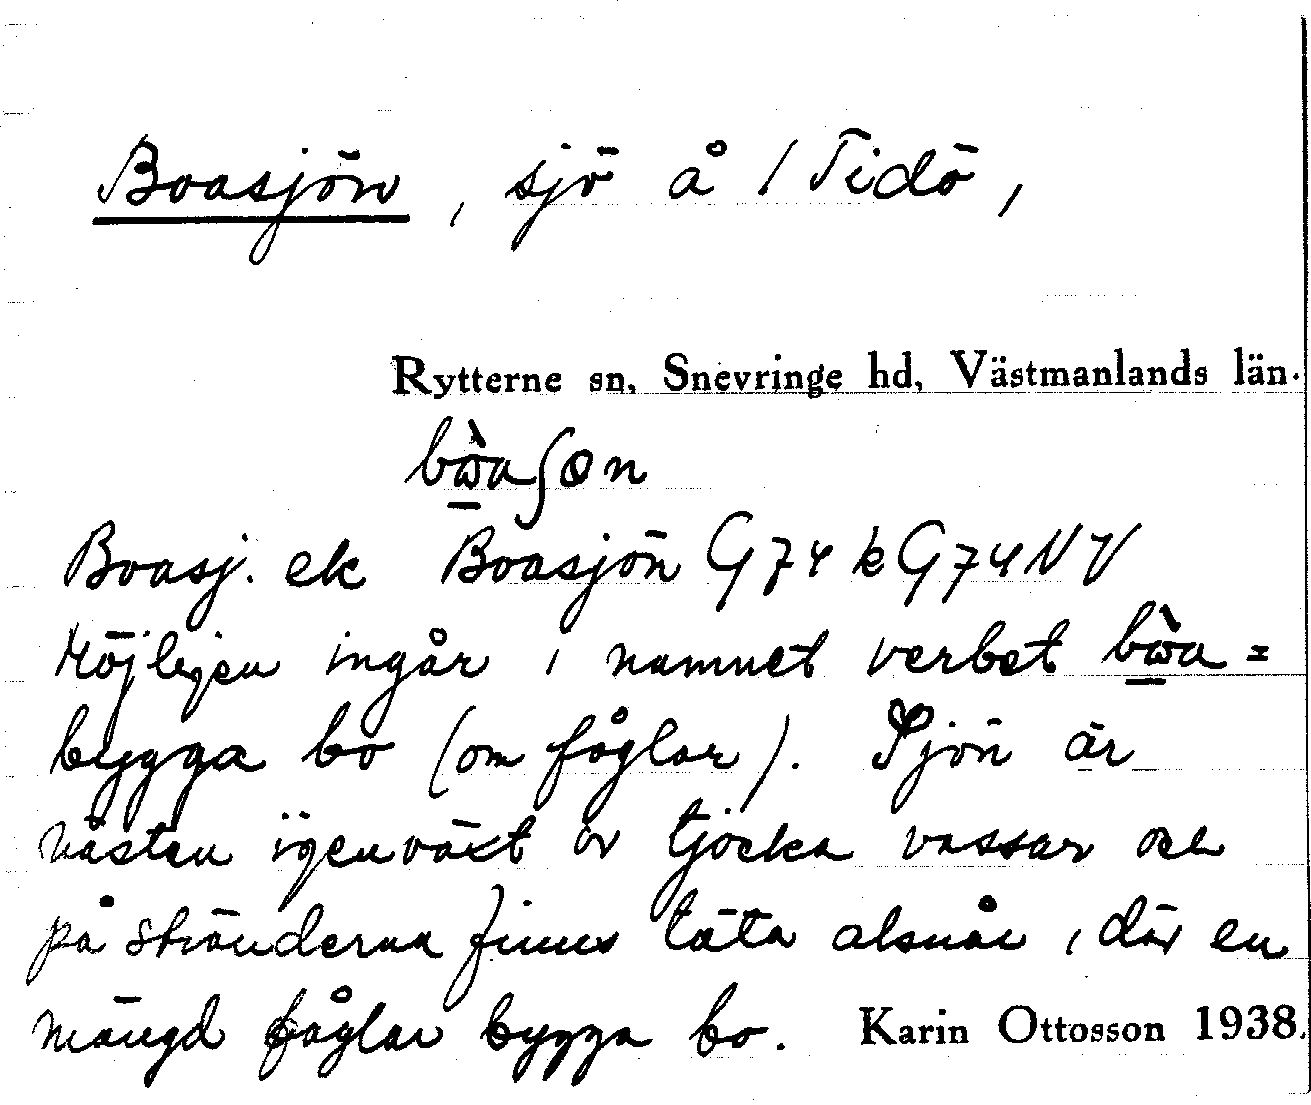 Boasjön, sjö å 1 Tidö,
Rytterne sn, Snevringe hd, Västmanlands län.
bὼ̱aʃɵn
Boasj. ek Boasjön G74 k G74 NV
Möjligen ingår i namnet verbet bὼ̱a =
bygga bo (om fåglar). Sjön är
nästan igenväxt av tjocka vassar och
på stränderna finns täta alsnår, där en
mängd fåglar bygga bo. Karin Ottosson 1938.